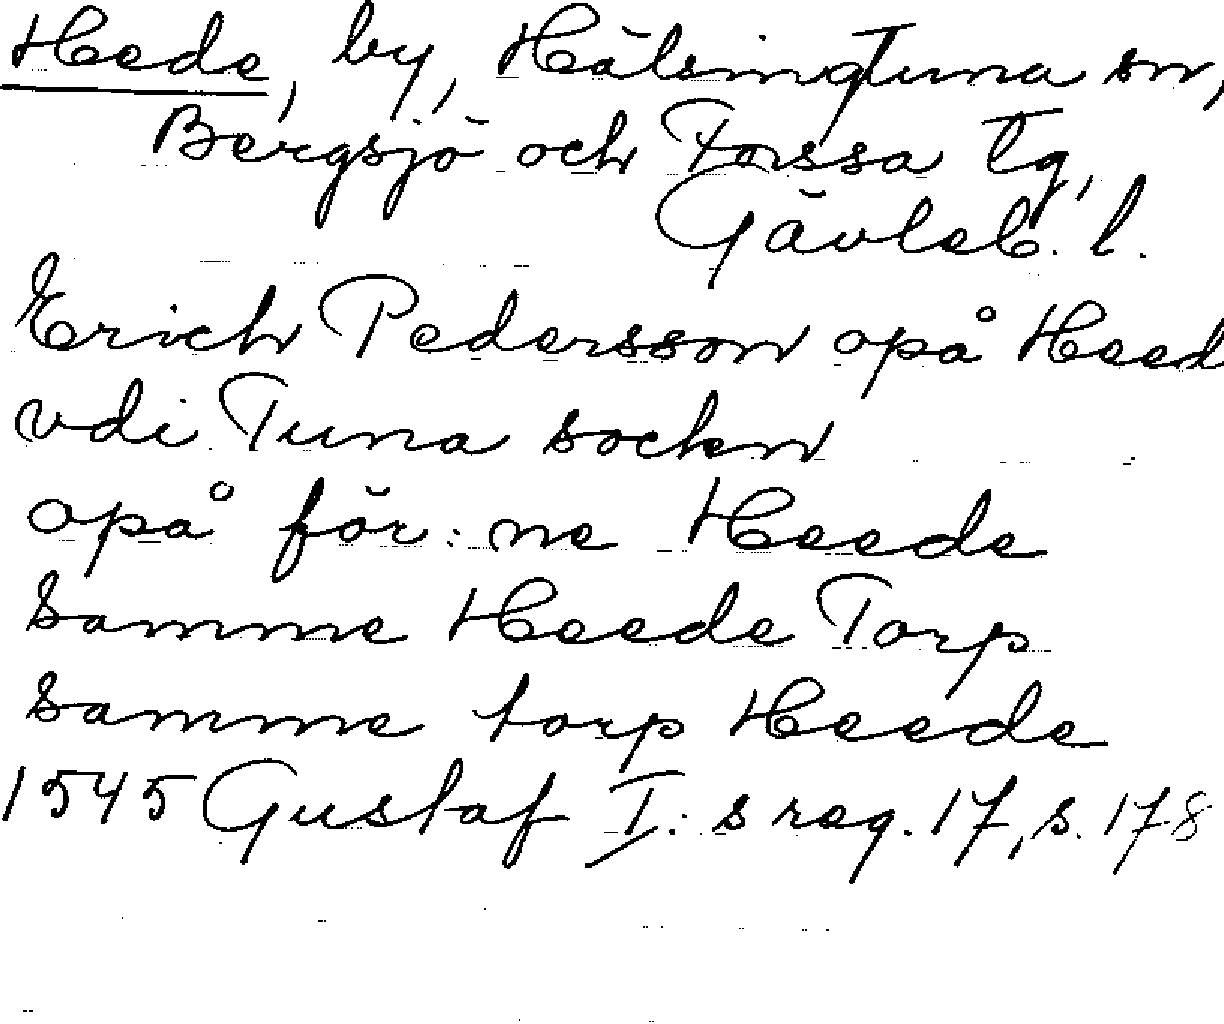 Hede, by, Hälsingtuna sn,
Bergsjö och Forssa tg,
Gävleb. l.
Erich Pedersson opå Heed
vdi Tuna sockn
opå för:ne Heede
samme Heede Torp
samme torp Heede
1545 Gustaf I:s reg. 17, s. 178